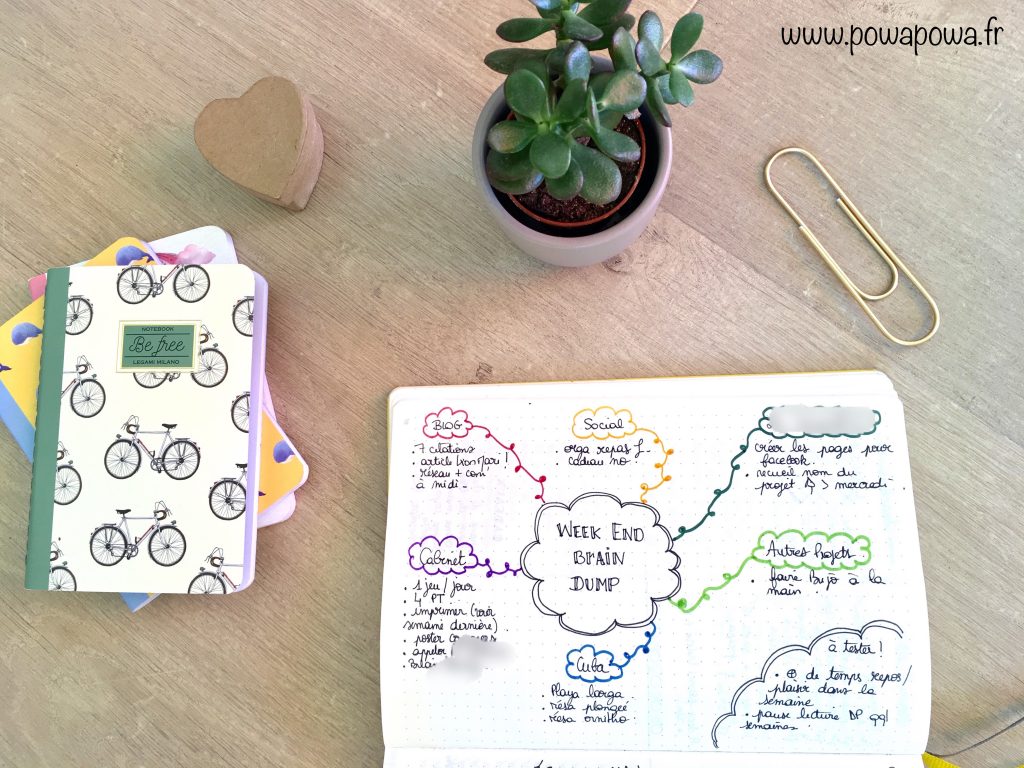 www.powapowa.fr
NOTEBOOK
Be free
LEGAMI MILANO
WEEK END
BRAIN
DUMP
BLOG
. 7 citations
. article
. réseau + com'
à midi -
Social
. orga repas
. cadeau
créer les pages pour
facebook.
. recueil nom du
projet > mercredi
Cabinet
. 1 jeu / jour
. 4 PT
. imprimer
semaine dernière)
. poster
. appeler
Autres Projets
. faire Bujo à la
main.
Cuba
. Playa larga
. résa plongée
. résa ornitho.
à tester !
. ⊕ de temps repos/
plaisir dans la
semaine
. pause lecture
semaines